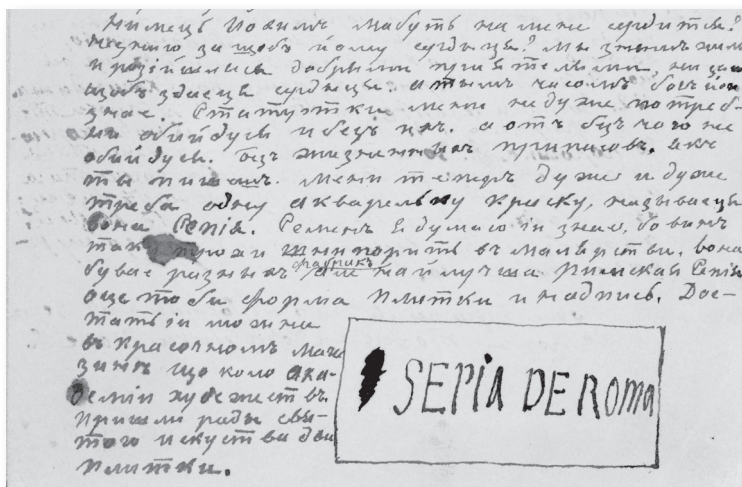 Нимець Иохимъ мабуть на мене сердится?
за щобъ йому сердыця? мы знимъ
розійшлысь добрымы приятелямы,
щобъ здаеця сердыця. а тымъ часомъ богъ ёго
знае. Статуэтки мени не дуже потреб-
ни обийдусь и безъ ихъ. а отъ безъ чого не
обийдусь. безъ жизненныхъ припасовъ. якъ
ты пишешъ. мени теперъ дуже и дуже
треба одну акварельну краску, называеця
вона Сепія. Семенъ я думаю іи знае, бо винъ
такы трохи шнипорить въ малярстви. вона
бувае разныхъ фабрикъ але найлучша Римская Сепія
оце тоби форма плитки и надпись. Дос-
тать іи можна
въ красочномъ мага
зинѣ що коло Ака-
деміи художествъ.
Пришли ради свя-
того искуства две
плитки.
SEPIA DE ROMA